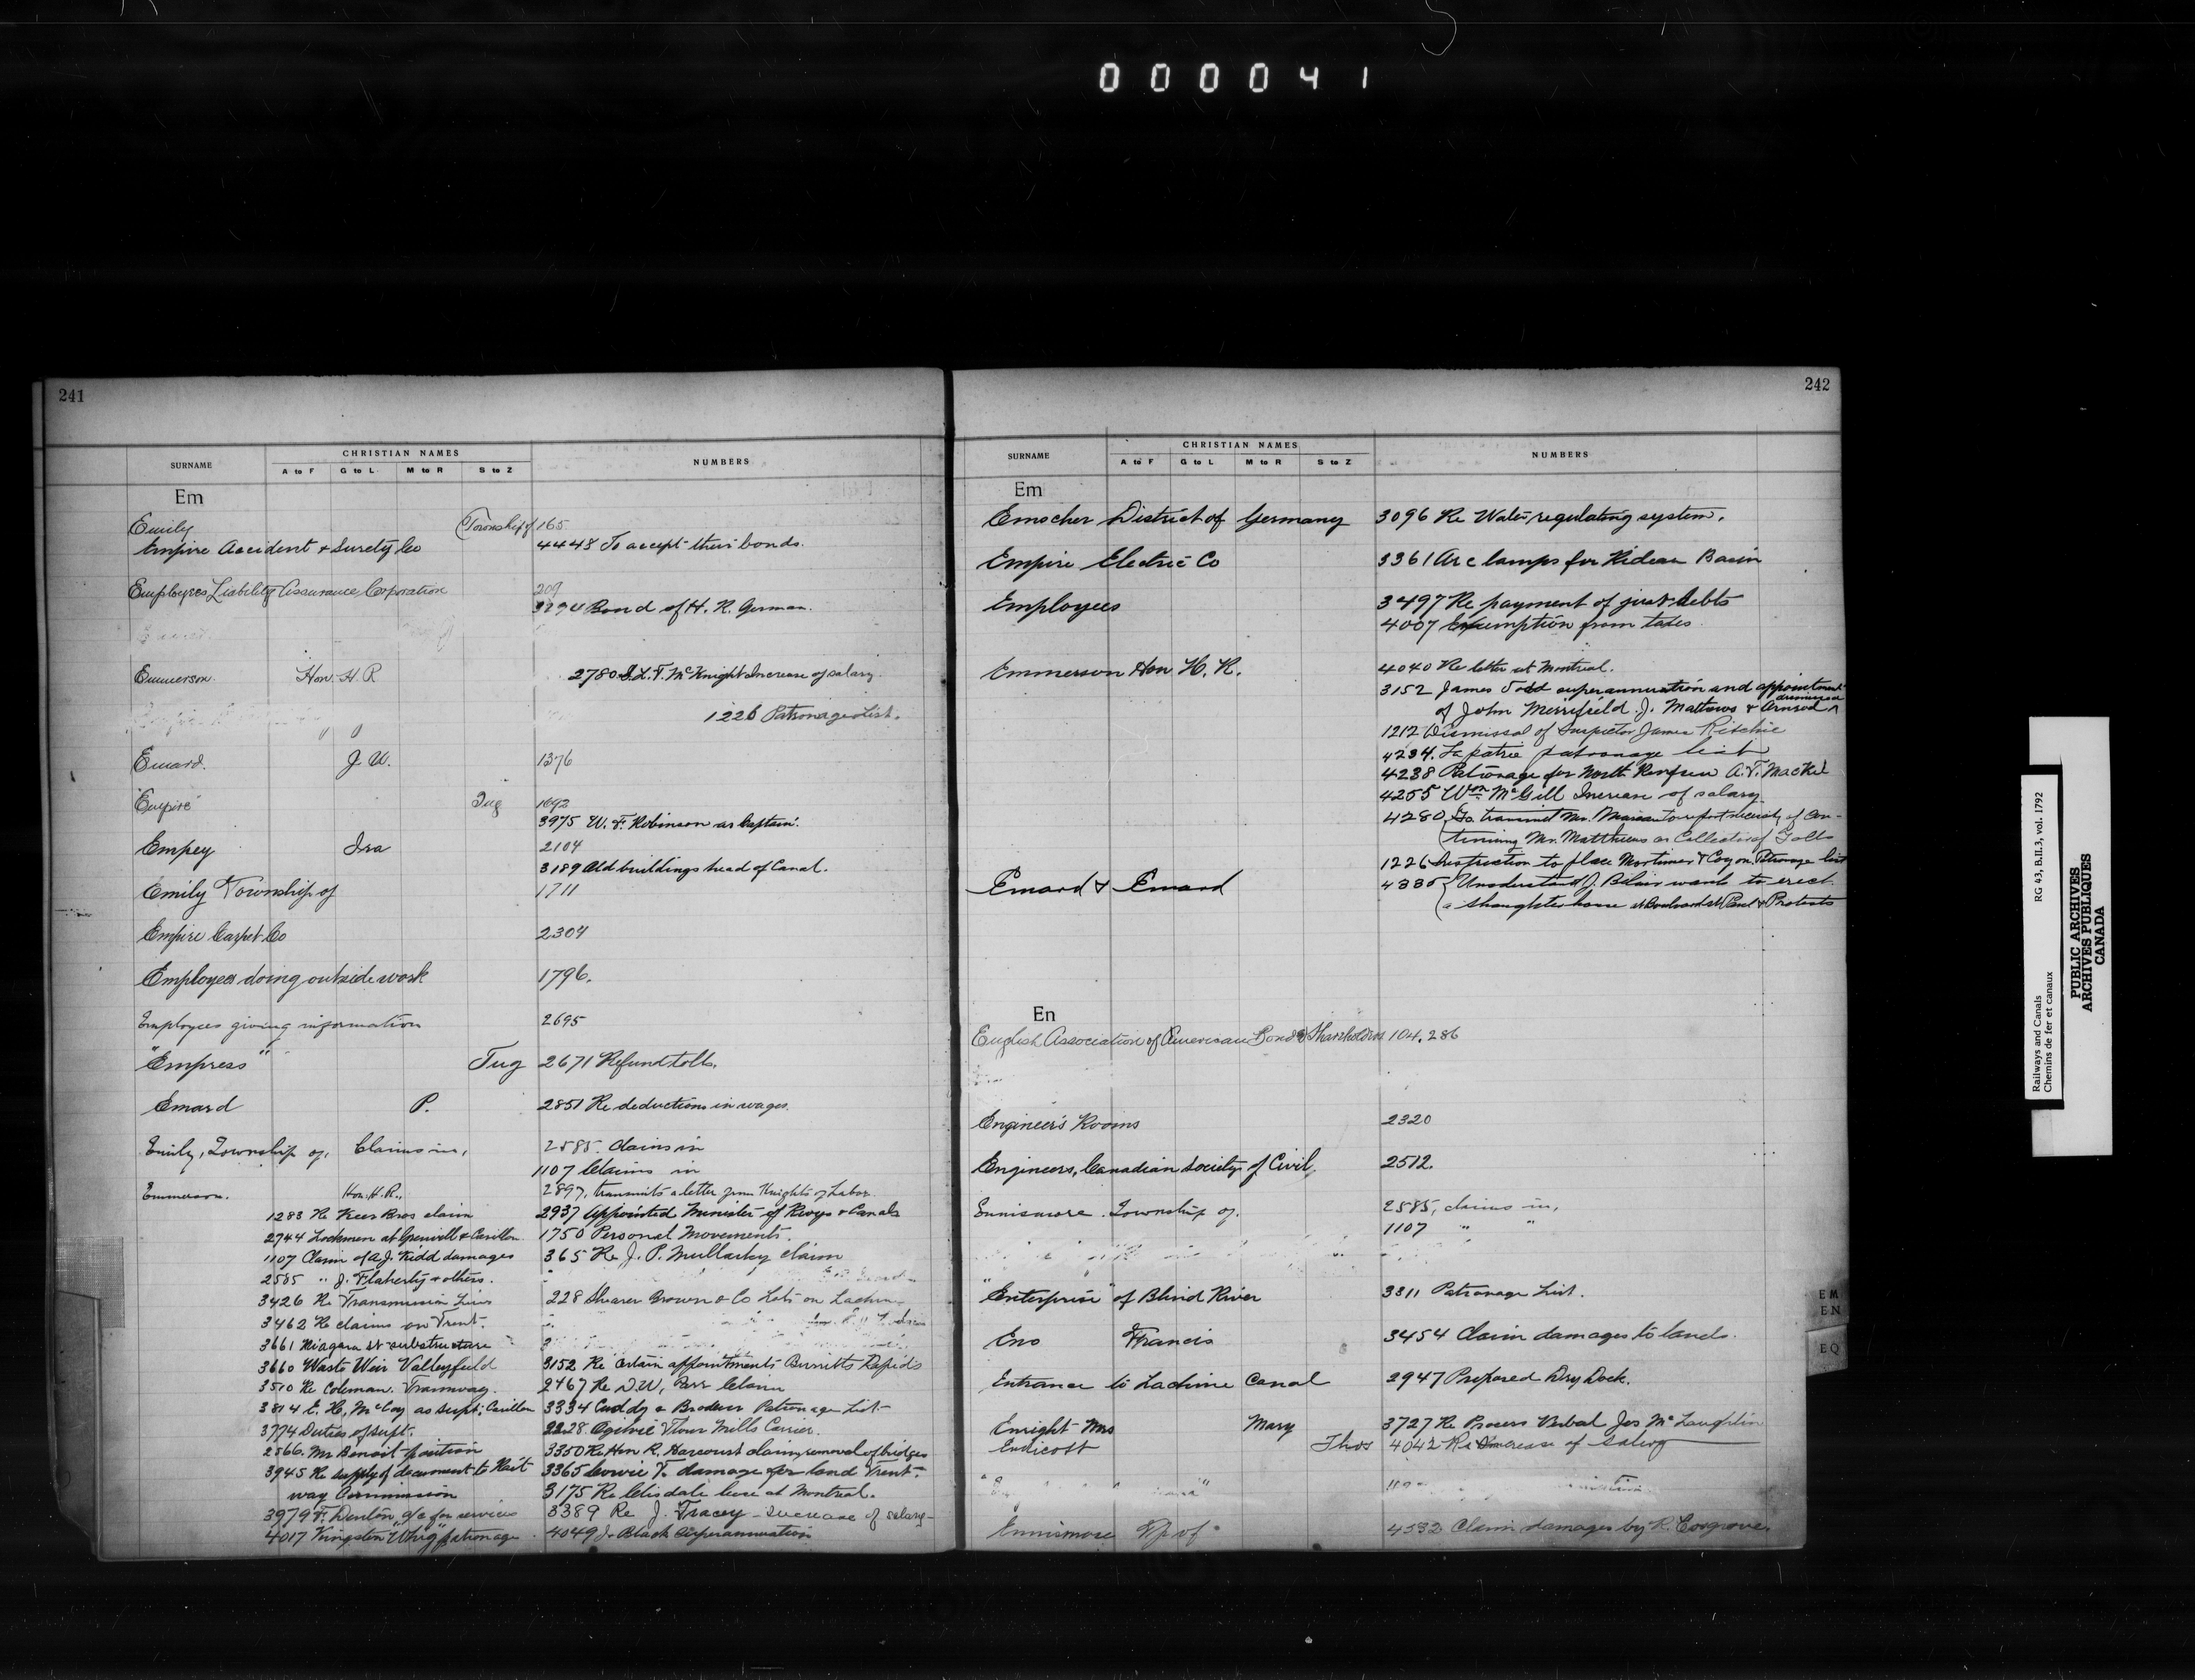 000041
241
SURNAME CHRISTIAN NAMES NUMBERS
A to F G to L M to R S to Z
Em
Emily (Township of 165
Empire Accident & Surety Co 4448 To accept their bonds.
Employers Liability Assurance Corporation 209
Bond of H. R. German.
Emmerson Hon. H R 2780 McKnight Increase of salary.
1226 Patronage List.
Emard. J. U. 1376
"Empire" Tug 1692
3975 W. F. Robinson as Captain.
Empey Ira 2104
3189 Old buildings head of Canal.
Emily Township of 1711
Empire Carpet Co 2304
Employees doing outside work 1796.
Employees giving information 2695
"Empress" Tug 2671 Refund tolls.
Emard P. 2851 Re deductions in wages.
Emily, Township of, Claims in, 2585. Claims in
1107 Claims in
Emmerson. Hon. H. R., 2897, transmits a letter from Knights of Labor.
1283 Re Keer Bros claim 2937 Appointed Minister of Rwys & Canals
2744 Lockmen at Grenville & Carillon 1750 Personal Movements.
1107 Claim of A. J. Kidd damages 365 Re J. P. Mullarky claim
2585 " J. Flaherty & others.
3426 Re Transmission Lines 228 Shearer Brown & Co Lots on Lachine
3462 Re claims on Trent.
3661 Niagara St substructure
3660 Waste Weir Valleyfield 3152 Re certain appointments Burritts Rapids
3510 Re Coleman. Tramway. 2467 Re D. W. claim
3814 E. H. McCoy as Supt; Carillon 3334 Cuddy & Brodeur Patronage List
3774 Duties of Supt. 2228. Ogilvie Flour Mills Carrier.
2566. Mr Benoit position 3350 Re Hon R. Harcourt claim, removal of bridges
3945 Re supply of document to Rail 3365 Cowie F. damage for land Trent.
way Commission 3175 Re Clisdale lease at Montreal.
3979 F. Denton, a/c for services 3389 Re J. Tracey increase of salary
4017 Kingston "Whig" patronage 4049 J. Black Superannuation
242
SURNAME CHRISTIAN NAMES NUMBERS
A to F G to L M to R S to Z
Em
Emscher District of Germany 3096 Re Water regulating system.
Empire Electric Co 3361 Arc lamps for Rideau Basin
Employees 3497 Re payment of just debts
4007 Exemption from taxes
Emmerson Hon H. R. 4040 Re letter at Montreal.
3152 James Todd superannuation and appointment
of John Merrifield. J. Mathews & dismissed
1212 Dismissal of Inspector James Ritchie
4234. La patrie patronage list
4238 Patronage for North Renfrew A. T. Mackie
4255 Wm McGill Increase of salary
4280 To transmit Mr. to report of con-
tinuing Mr. Matthews as Collector of Tolls
1226 Instruction to place Mortimer & Coy on Patronage list
Emard & Emard Understand J. Blair wants to erect
a slaughter house at Boulevard St Paul & Protests
En
English Association of American Bond & Shareholders 104, 286
Engineer's Rooms 2320
Engineers, Canadian Society of Civil. 2512.
Ennismore. Township of. 2585, claims in,
1107 " "
"Enterprise" of Blind River 3311 Patronage List.
Eno Francis 3454 Claim damages to lands.
Entrance to Lachine Canal 2947 Proposed Dry Dock.
Enright Mrs Mary 3727 Re Proces Verbal Jos McLaughlin
Endicott Thos 4042 Re Increase of Salary
Ennismore Tp of 4532 Claim damages by R. Cosgrove.
EM
EN
EQ
Railways and Canals RG 43, B.II.3, vol. 1792
Chemins de fer et canaux
PUBLIC ARCHIVES
ARCHIVES PUBLIQUES
CANADA